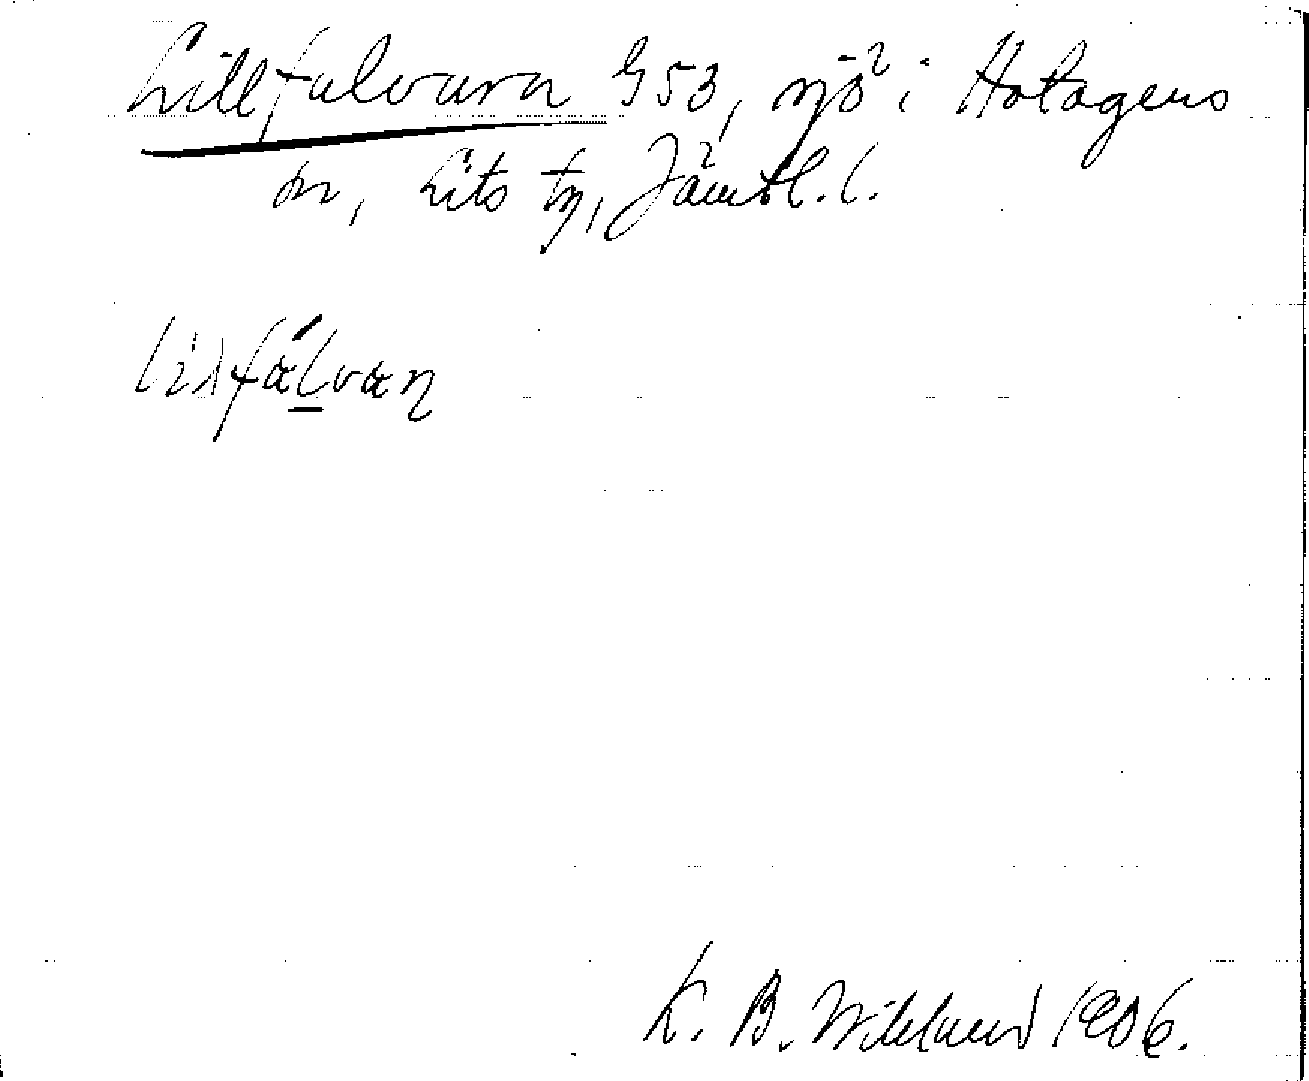 Lillfalvarn G53, sjö i Hotagens
sn, Lits tg, Jämtl. l.
K. B. Wiklund 1906.